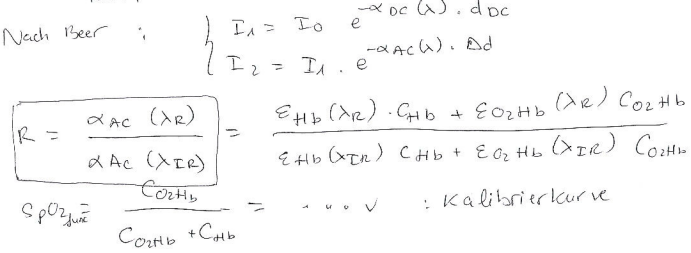 Nach Beer : { I₁ = I₀ e^(-α_DC(λ) . d_DC)
I₂ = I₁ . e^(-α_AC(λ) . Δd)
R = α_AC (λ_R) / α_AC (λ_IR) = (ε_Hb(λ_R) . C_Hb + ε_O2Hb (λ_R) C_O2Hb) / (ε_Hb(λ_IR) C_Hb + ε_O2Hb (λ_IR) C_O2Hb)
SpO2 = C_O2Hb / (C_O2Hb + C_Hb) = .... : Kalibrierkurve